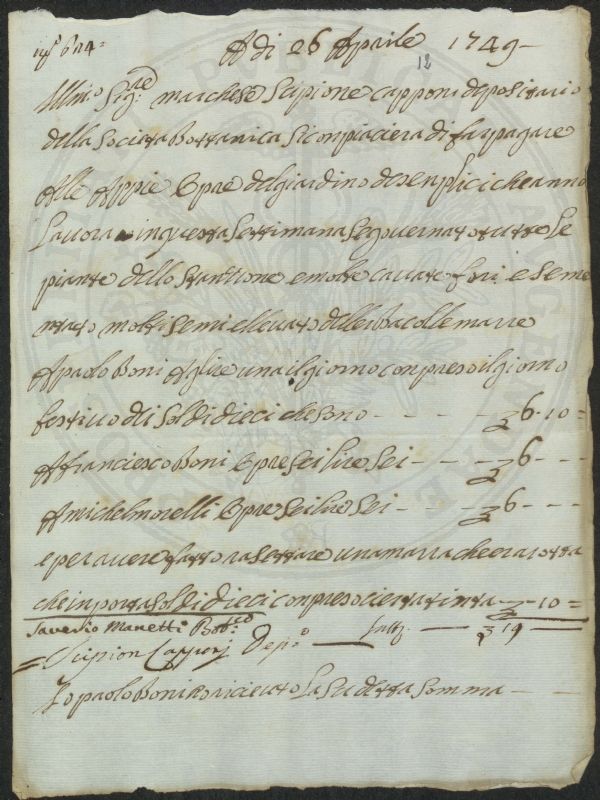 A di 26 Aprile 1749
12
Illmo Sigre marchese Scipione capponi depositario
della Societa Bottanica si conpiaciera di far pagare
Alle Appie Opre del giardino de senplici che anno
Lavora in questa Settimana Se governato tutte Le
piante dello Stantione e molte cavate fori e seme
ntato molti semi ellevato delle erba colle marre
A paolo Boni A lire una il giorno conpreso il giorno
festivo di Soldi dieci che sono - - - - 6.10 =
A francesco Boni Opre Sei lire Sei - - - 6 - - -
A michel morelli Opre Sei lire Sei - - - 6 - - -
e per avere fatto rasettare una marra che era rotta
che inporta soldi dieci conpreso cierta tinta - 10 =
Saverio Manetti Botco
= Scipion Capponi Depo — — 19 —
Io paolo Boni o riceuto La su detta Somma - - -